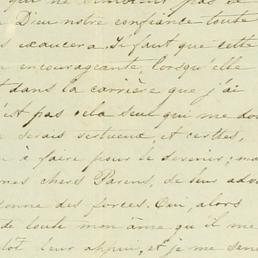 qui ne
Dieu notre confiance toute
exaucera. Il faut que cette
encourageante, lorsqu'elle
dans la carrière que j'ai
c'est pas cela seul qui me do
serais vertueux, et certes,
à faire pour le devenir; ma
mes chers Parens, de leur ado
donne des forces. Oui, alors
de toute mon âme qu'il me
leur appui, et je me sen